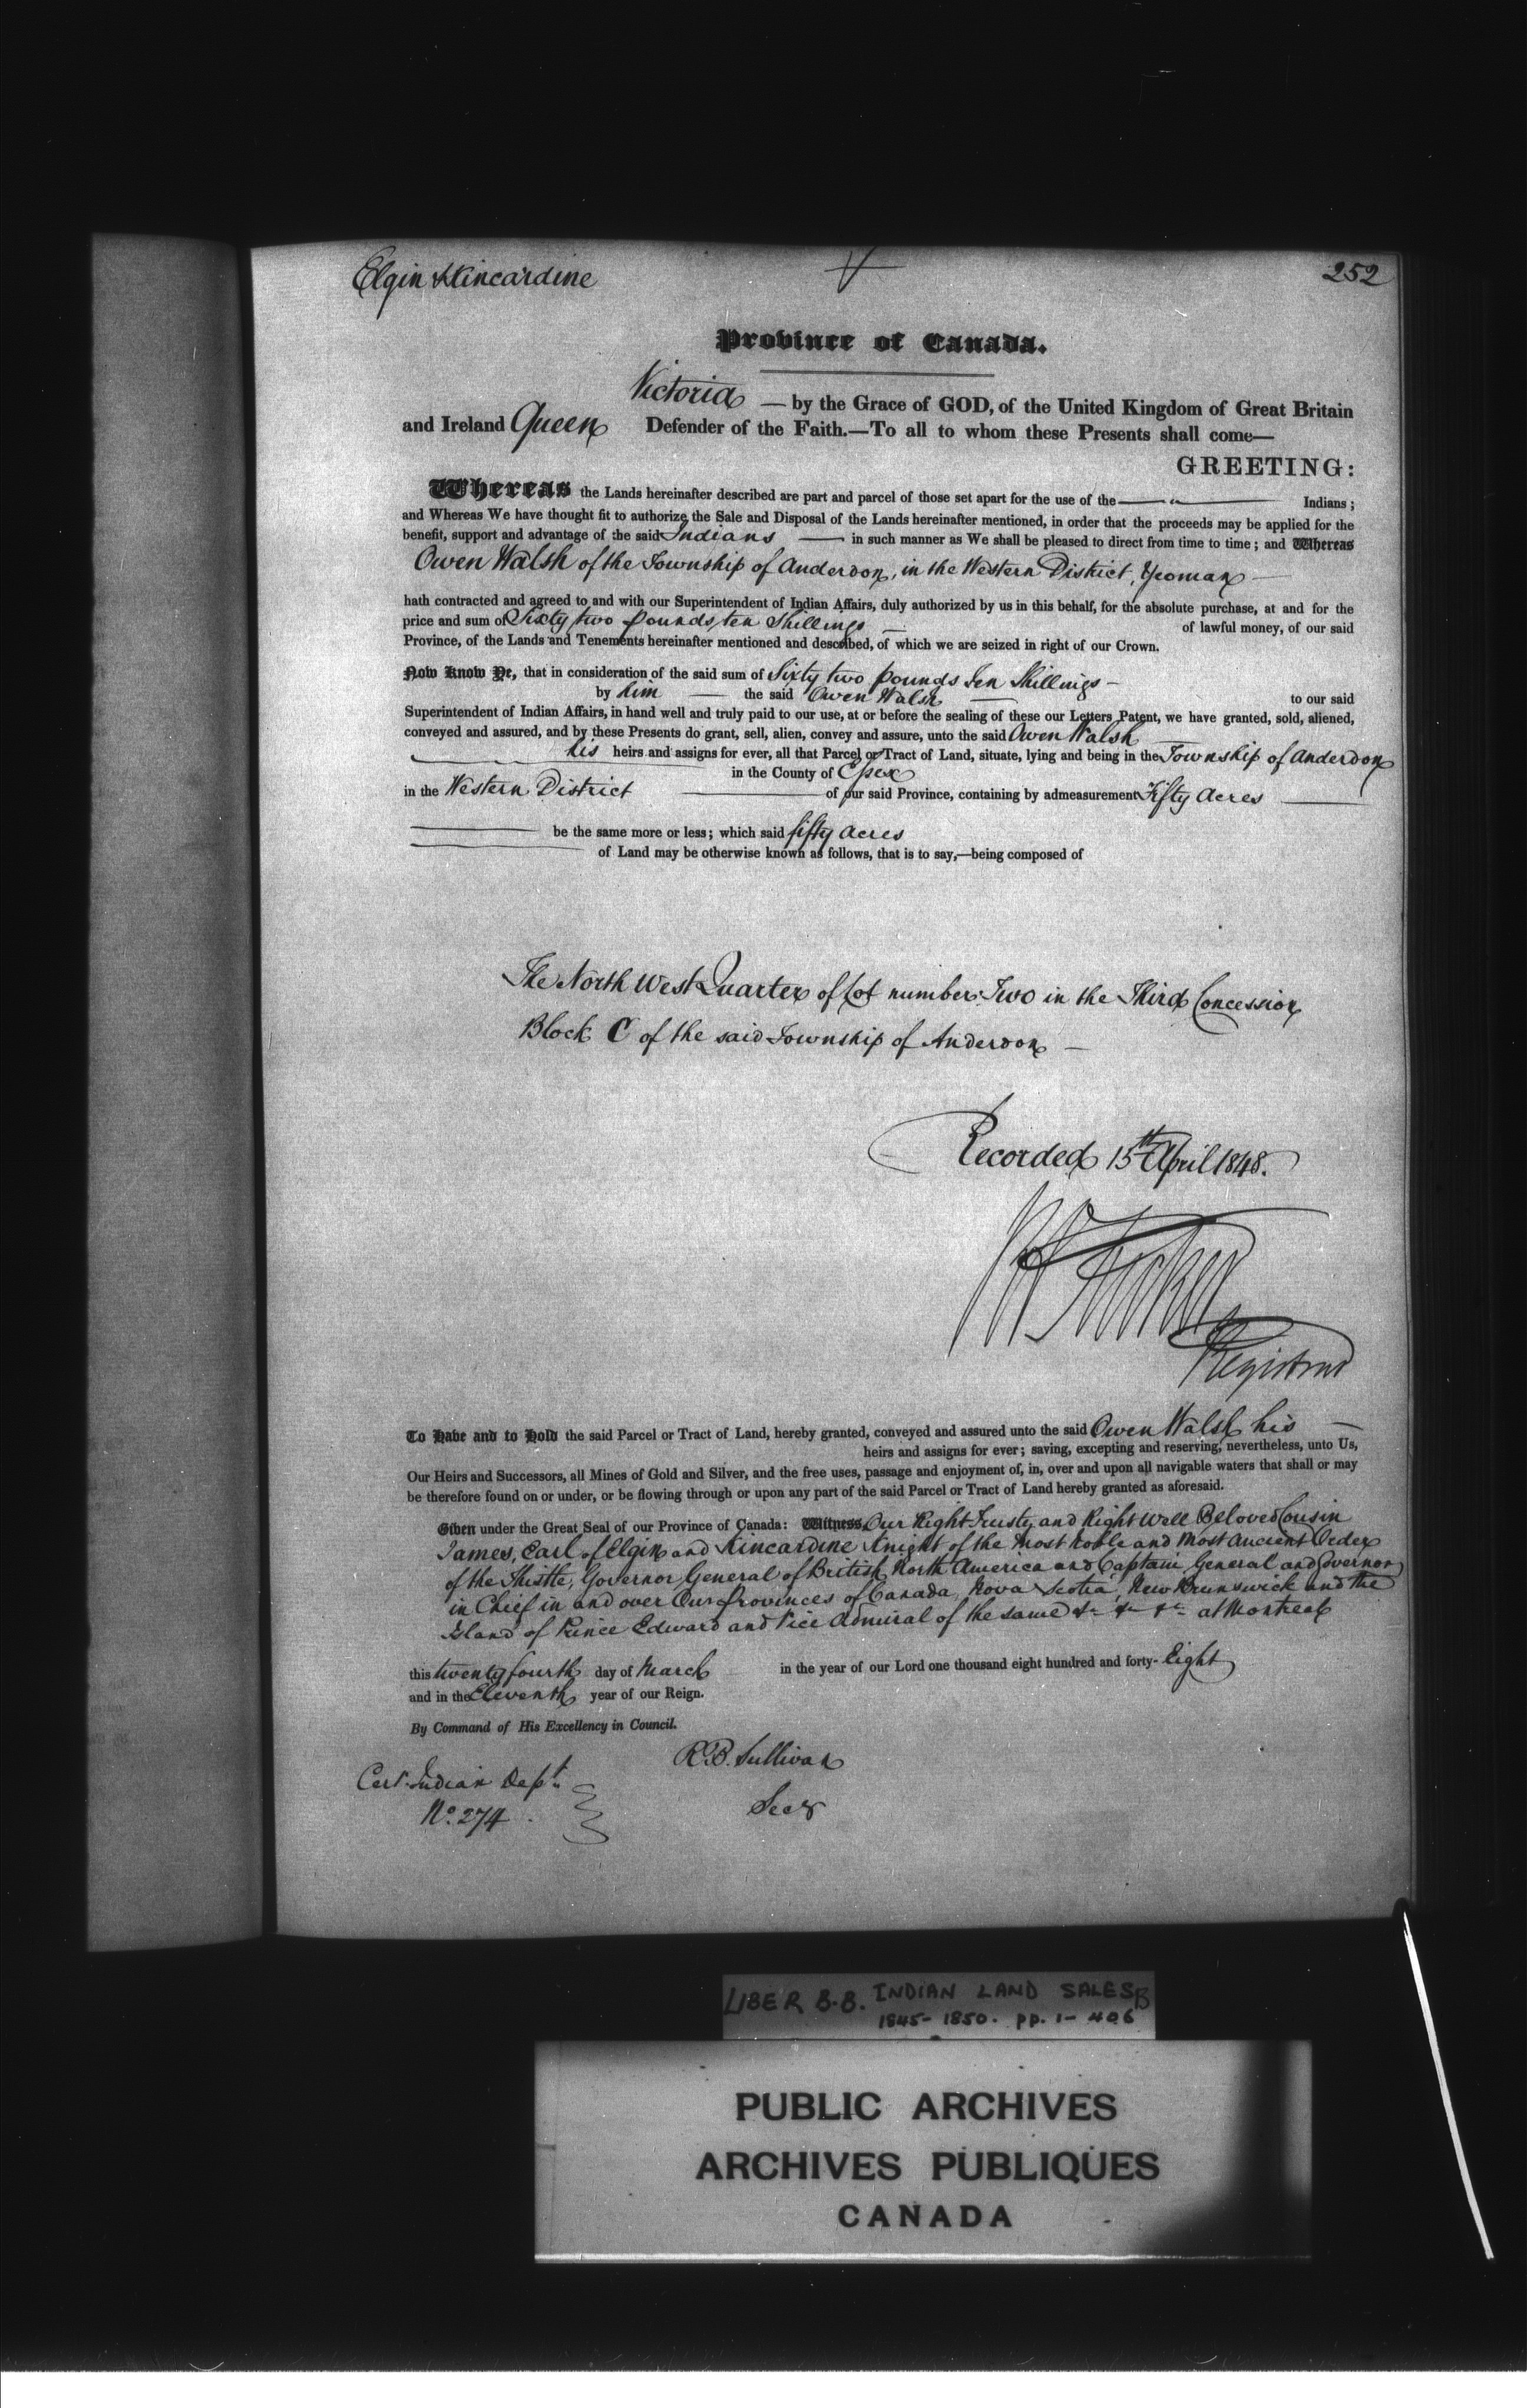 Elgin & Kincardine
252
Province of Canada.
Victoria — by the Grace of GOD, of the United Kingdom of Great Britain
and Ireland Queen Defender of the Faith.—To all to whom these Presents shall come—
GREETING:
Whereas the Lands hereinafter described are part and parcel of those set apart for the use of the — " — Indians;
and Whereas We have thought fit to authorize the Sale and Disposal of the Lands hereinafter mentioned, in order that the proceeds may be applied for the
benefit, support and advantage of the said Indians — in such manner as We shall be pleased to direct from time to time; and Whereas
Owen Walsh of the Township of Anderdon, in the Western District, Yeoman —
hath contracted and agreed to and with our Superintendent of Indian Affairs, duly authorized by us in this behalf, for the absolute purchase, at and for the
price and sum of Sixty two pounds, ten Shillings — of lawful money, of our said
Province, of the Lands and Tenements hereinafter mentioned and described, of which we are seized in right of our Crown.
Now Know Ye, that in consideration of the said sum of Sixty two pounds Ten Shillings —
by him — the said Owen Walsh — to our said
Superintendent of Indian Affairs, in hand well and truly paid to our use, at or before the sealing of these our Letters Patent, we have granted, sold, aliened,
conveyed and assured, and by these Presents do grant, sell, alien, convey and assure, unto the said Owen Walsh
his heirs and assigns for ever, all that Parcel or Tract of Land, situate, lying and being in the Township of Anderdon
in the County of Essex
in the Western District — of our said Province, containing by admeasurement Fifty Acres —
— be the same more or less; which said fifty Acres
— of Land may be otherwise known as follows, that is to say,—being composed of
The North West Quarter of Lot number Two in the Third Concession
Block C of the said Township of Anderdon —
Recorded 15th April 1848.
Registrar
To Have and to Hold the said Parcel or Tract of Land, hereby granted, conveyed and assured unto the said Owen Walsh his —
heirs and assigns for ever; saving, excepting and reserving, nevertheless, unto Us,
Our Heirs and Successors, all Mines of Gold and Silver, and the free uses, passage and enjoyment of, in, over and upon all navigable waters that shall or may
be therefore found on or under, or be flowing through or upon any part of the said Parcel or Tract of Land hereby granted as aforesaid.
Given under the Great Seal of our Province of Canada: Witness, Our Right Trusty and Right Well Beloved Cousin
James, Earl of Elgin and Kincardine Knight of the Most Noble and Most Ancient Order
of the Thistle, Governor General of British North America and Captain General and Governor
in Chief in and over Our Provinces of Canada, Nova Scotia, New Brunswick and the
Island of Prince Edward and Vice Admiral of the same &c &c &c at Montreal
this twenty fourth day of March in the year of our Lord one thousand eight hundred and forty-Eight
and in the Eleventh year of our Reign.
By Command of His Excellency in Council.
R. B. Sullivan
Secy
Cert. Indian Dept.
No. 274.
LIBER B.B. INDIAN LAND SALES B
1845-1850. pp. 1-406
PUBLIC ARCHIVES
ARCHIVES PUBLIQUES
CANADA